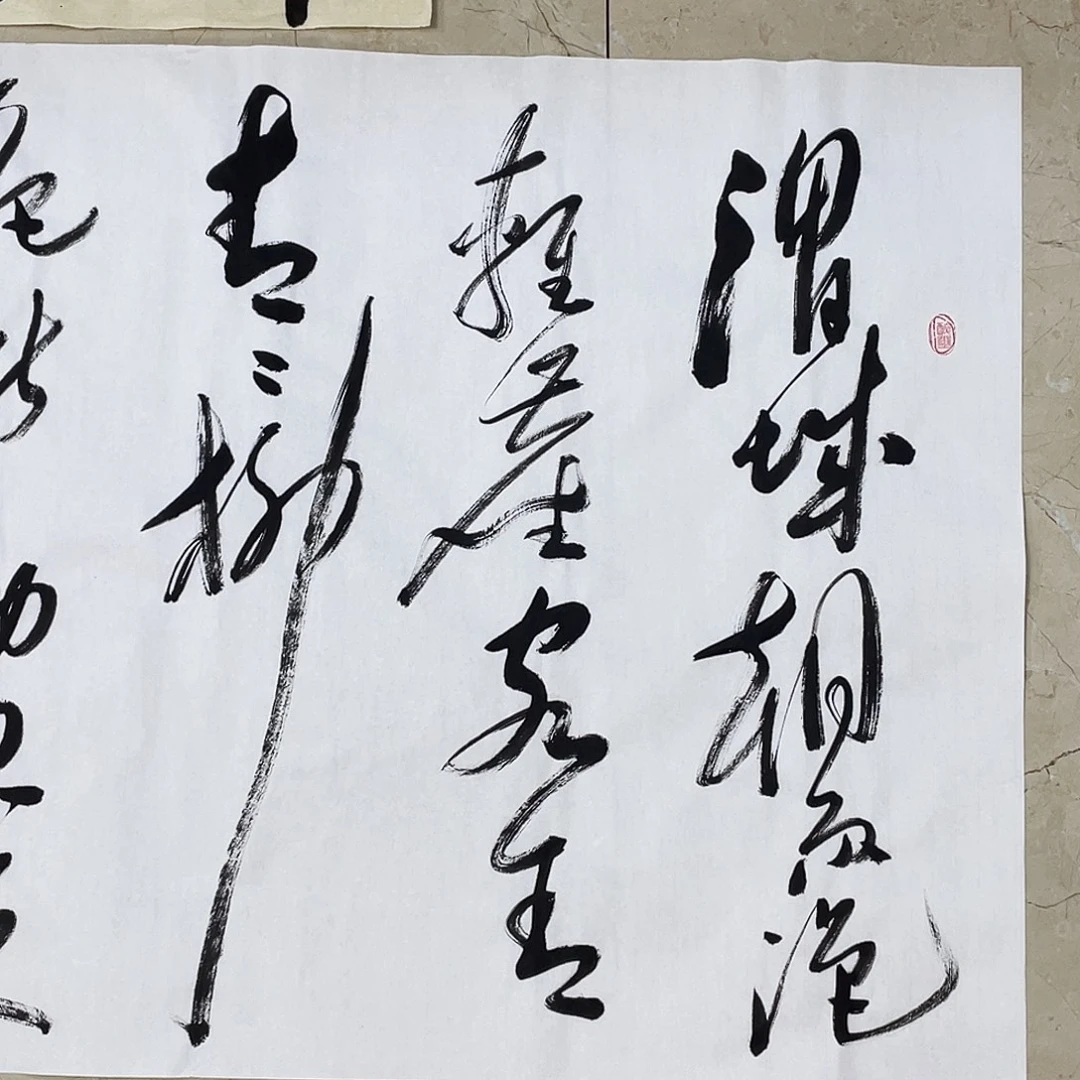 渭城朝雨浥
輕塵客舍
青々柳
色